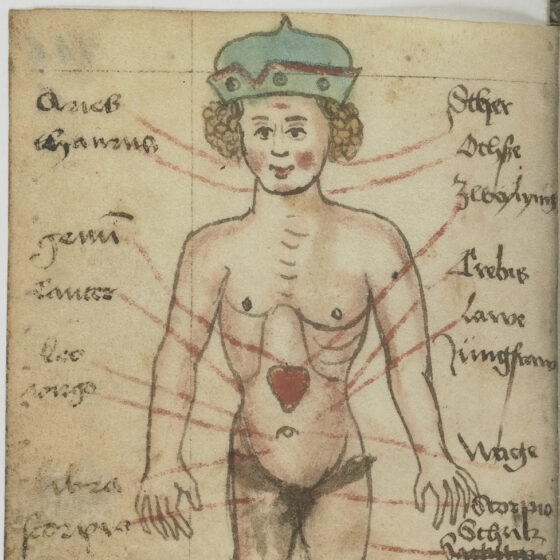 Aries
Thaurus
gemī
Cancer
leo
virgo
libra
Scorpio
Ochße
Zwyling
Crebis
lawe
Jüngfraw
Wage
Scorpio
Schütz